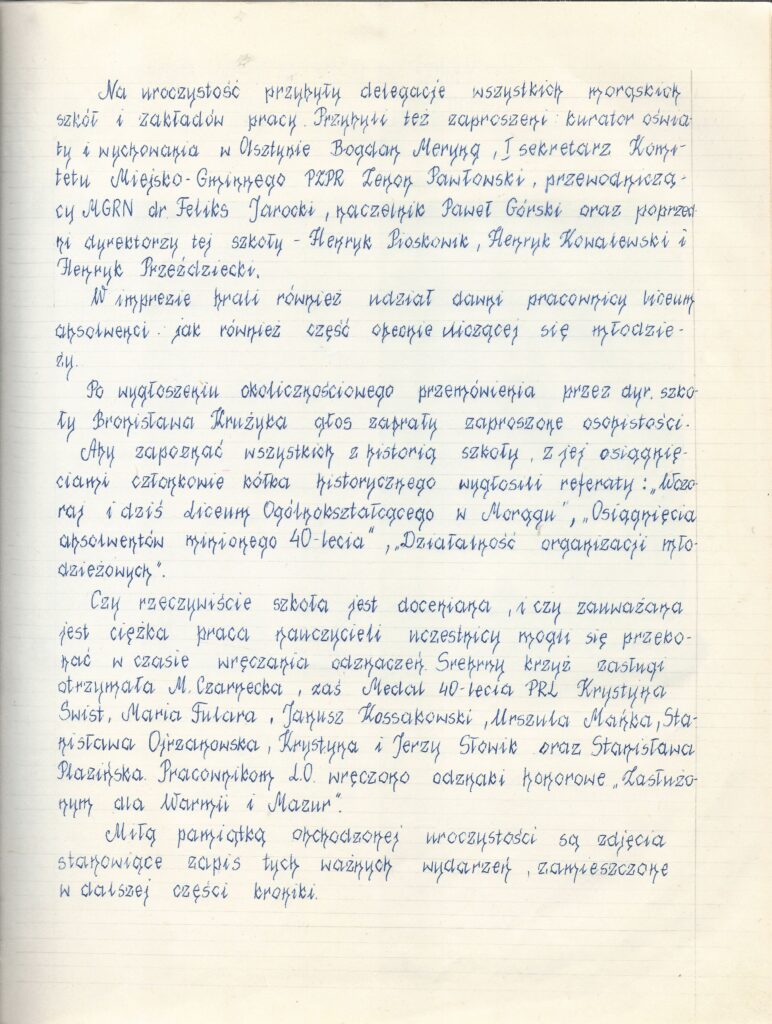 Na uroczystość przybyły delegacje wszystkich morąskich
szkół i zakładów pracy. Przybyli też zaproszeni: kurator oświa-
ty i wychowania w Olsztynie Bogdan Meryną, I sekretarz Komi-
tetu Miejsko-Gminnego PZPR Zenon Pawłowski, przewodniczą-
cy MGRN dr Feliks Jarocki, naczelnik Paweł Górski oraz poprzed
ni dyrektorzy tej szkoły - Henryk Pioskowik, Henryk Kowalewski i
Henryk Przeździecki.
W imprezie brali również udział dawni pracownicy liceum
absolwenci. jak również część obecnie uczącej się młodzie-
ży.
Po wygłoszeniu okolicznościowego przemówienia przez dyr. szko-
ły Bronisława Krużyka głos zabrały zaproszone osobistości.
Aby zapoznać wszystkich z historią szkoły, z jej osiągnię-
ciami członkowie kółka historycznego wygłosili referaty: „Wczo
raj i dziś Liceum Ogólnokształcącego w Morągu", „Osiągnięcia
absolwentów minionego 40-lecia", „Działalność organizacji mło-
dzieżowych".
Czy rzeczywiście szkoła jest doceniana, i czy zauważana
jest ciężka praca nauczycieli uczestnicy mogli się przeko-
nać w czasie wręczania odznaczeń. Srebrny krzyż zasługi
otrzymała M. Czarnecka, zaś Medal 40-lecia PRL Krystyna
Świst, Maria Fulara, Janusz Kossakowski, Urszula Mańka, Sta-
nisława Ojrzanowska, Krystyna i Jerzy Słowik oraz Stanisława
Plazińska. Pracownikom L.O. wręczono odznaki honorowe „Zasłużo-
nym dla Warmii i Mazur".
Miłą pamiątką obchodzonej uroczystości są zdjęcia
stanowiące zapis tych ważnych wydarzeń, zamieszczone
w dalszej części kroniki.